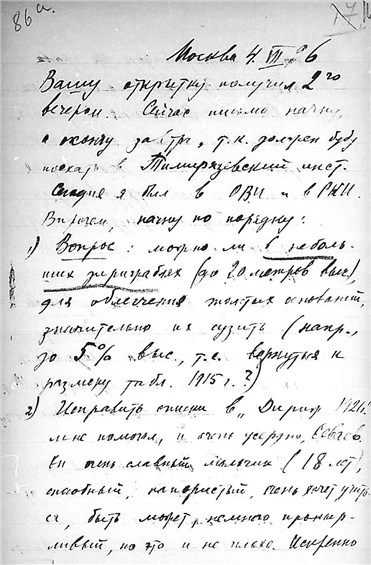 86а.
Москва 4.VII 26
Вашу открытку получил 2го
вечером. Сейчас письмо начну,
а окончу завтра, т.к. должен буду
поехать в Тимирязевский инст.
Сегодня я был в и в РКИ.
Впрочем, начну по порядку:
1) Вопрос: можно ли в неболь-
ших (до 20 метров выс.)
для облегчения желтых
значительно их сузить (напр.,
до 5% выс., т.е. вернуться к
размеру табл. 1915 г.?)
2) Исправить описки в „
мне помогал, и очень усердно,
Он очень славный мальчик (18 лет),
способный, напористый, очень хочет учить-
ся, быть может, немного проныр-
ливый, но это и не плохо. Искренно